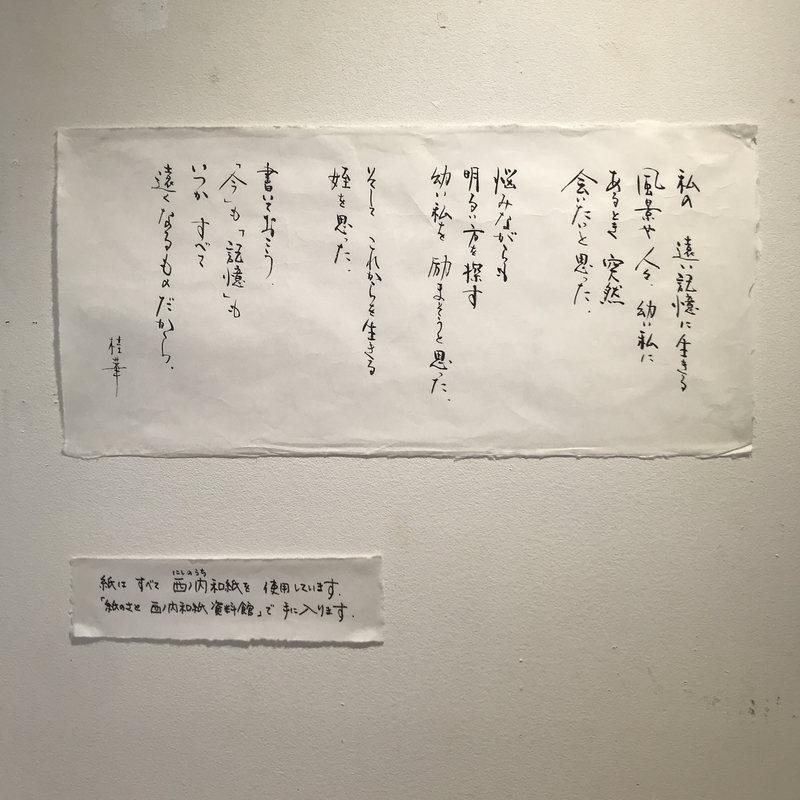 私の 遠い記憶に生きる
風景や人々、幼い私に
あるとき 突然
会いたいと思った。
悩みながらも
明るい方を探す
幼い私を 励まそうと思った。
そして これからを生きる
姪を思った。
書いておこう。
「今」も、「記憶」も
いつか すべて
遠くなるものだから。
桂華
紙は すべて 西ノ内和紙を 使用しています。
にしのうち
「紙のさと 西ノ内和紙 資料館」で 手に入ります。